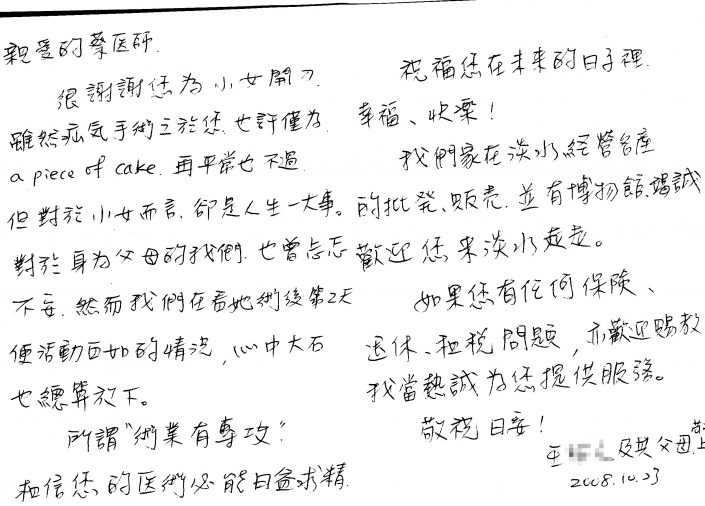 親愛的蔡医師.
很謝謝您為小女開刀.
雖然疝気手術之於您.也許僅為
a piece of cake.再平常也不過.
但對於小女而言.卻是人生一大事。
對於身為父母的我們.也曾忐忑
不安.然而我們在看她術後第2天
便活動百如的情況,心中大石
也總算放下。
所謂"術業有專攻".
相信您的医術必能日益求精.
祝福您在未來的日子裡.
幸福、快樂!
我們家在淡水經營名產
的批発、販売.並有博物館.竭誠
歡迎您來淡水走走。
如果您有任何保險、
退休、租税問題,亦歡迎賜教
我當熱誠為您提供服務。
敬祝日安!
王 及其父母敬上
2008.10.23